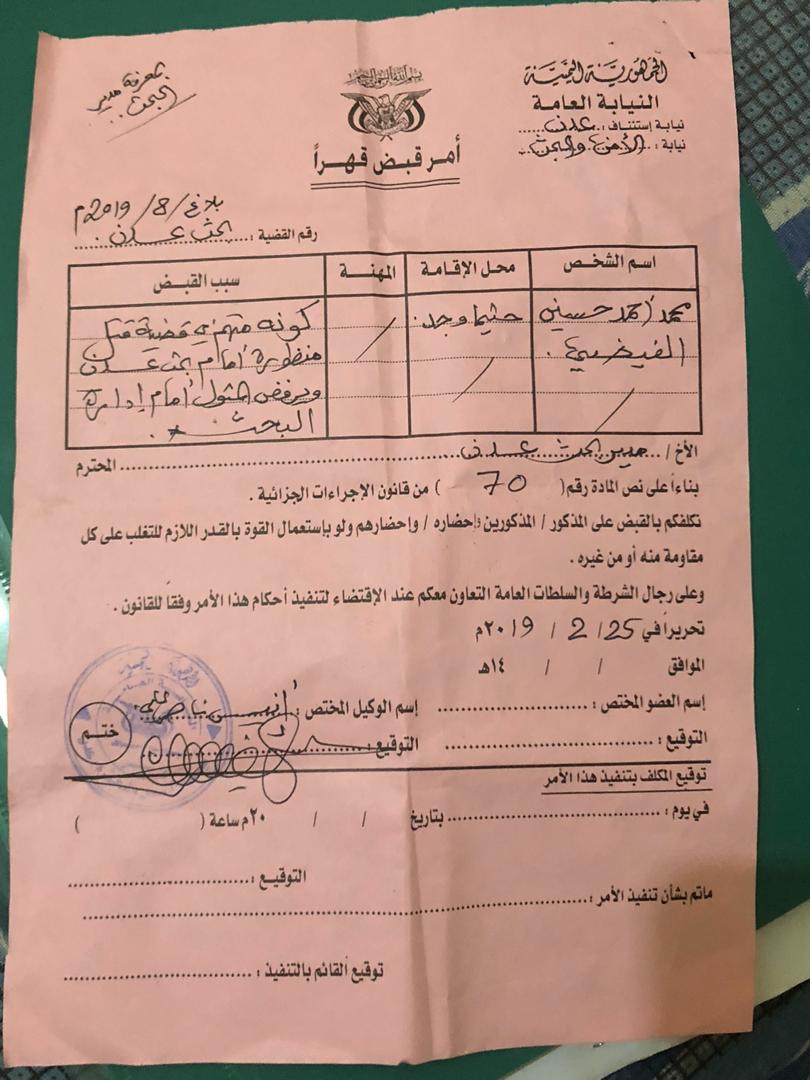 بسم الله الرحمن الرحيم
الجمهورية اليمنية
النيابة العامة
نيابة إستئناف : عدن
نيابة : الأمن والبحث
بمعرفة مدير
البحث
أمر قبض قهراً
بلاغ / 8 / 2019م
رقم القضية : بحث عدن
اسم الشخص محل الإقامة المهنة سبب القبض
محمد أحمد حسين حيثما وجد / كونه متهم في قضية قتل
منظورة أمام بحث عدن
ويرفض المثول أمام إدارة
البحث
الأخ / مدير بحث عدن المحترم
بناءاً على نص المادة رقم ( 70 ) من قانون الإجراءات الجزائية .
نكلفكم بالقبض على المذكور / المذكورين وإحضاره / وإحضارهم ولو بإستعمال القوة بالقدر اللازم للتغلب على كل
مقاومة منه أو من غيره .
وعلى رجال الشرطة والسلطات العامة التعاون معكم عند الإقتضاء لتنفيذ أحكام هذا الأمر وفقاً للقانون .
تحريراً في 25 / 2 / ٢٠١9م
الموافق / / ١٤هـ
إسم العضو المختص : إسم الوكيل المختص :
التوقيع : التوقيع :
ختم
توقيع المكلف بتنفيذ هذا الأمر
في يوم : بتاريخ / / ٢٠م ساعة ( )
التوقيع :
ماتم بشأن تنفيذ الأمر :
توقيع القائم بالتنفيذ :